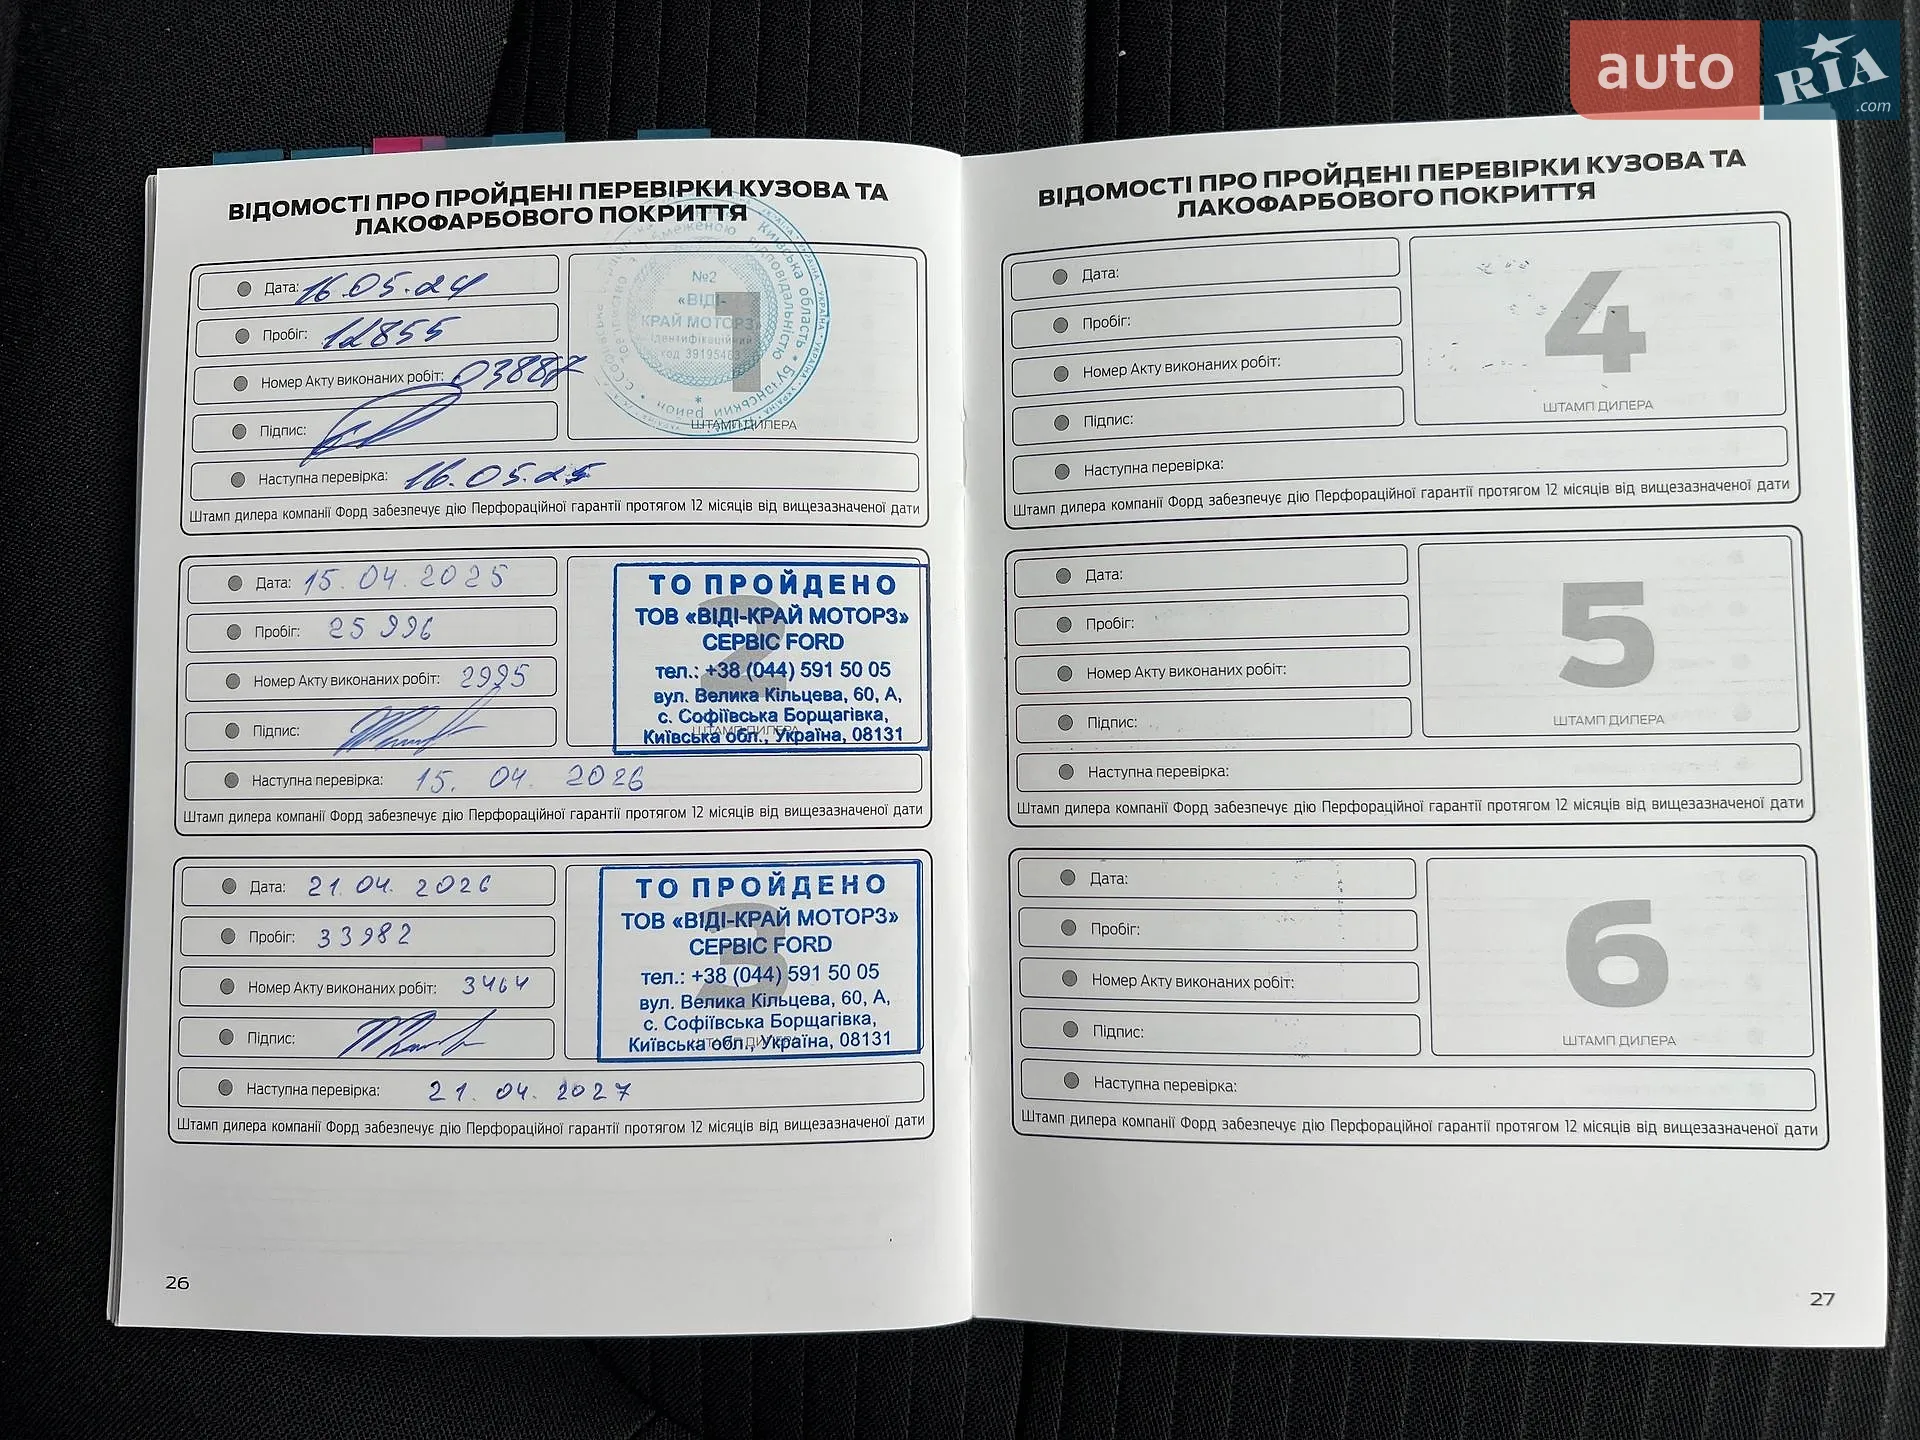 auto RIA .com
ВІДОМОСТІ ПРО ПРОЙДЕНІ ПЕРЕВІРКИ КУЗОВА ТА
ЛАКОФАРБОВОГО ПОКРИТТЯ
Дата: 16.05.24
Пробіг: 12855
Номер Акту виконаних робіт: 03887
Підпис:
№2
«ВІДІ-
КРАЙ МОТОРЗ»
Ідентифікаційний
код 39195463
Київська область * Бучанський район *
1
ШТАМП ДИЛЕРА
Наступна перевірка: 16.05.25
Штамп дилера компанії Форд забезпечує дію Перфораційної гарантії протягом 12 місяців від вищезазначеної дати
Дата: 15.04.2025
Пробіг: 25996
Номер Акту виконаних робіт: 2995
Підпис:
2
ТО ПРОЙДЕНО
ТОВ «ВІДІ-КРАЙ МОТОРЗ»
СЕРВІС FORD
тел.: +38 (044) 591 50 05
вул. Велика Кільцева, 60, А,
с. Софіївська Борщагівка,
Київська обл., Україна, 08131
ШТАМП ДИЛЕРА
Наступна перевірка: 15. 04. 2026
Штамп дилера компанії Форд забезпечує дію Перфораційної гарантії протягом 12 місяців від вищезазначеної дати
Дата: 21.04.2026
Пробіг: 33982
Номер Акту виконаних робіт: 3464
Підпис:
3
ТО ПРОЙДЕНО
ТОВ «ВІДІ-КРАЙ МОТОРЗ»
СЕРВІС FORD
тел.: +38 (044) 591 50 05
вул. Велика Кільцева, 60, А,
с. Софіївська Борщагівка,
Київська обл., Україна, 08131
ШТАМП ДИЛЕРА
Наступна перевірка: 21. 04. 2027
Штамп дилера компанії Форд забезпечує дію Перфораційної гарантії протягом 12 місяців від вищезазначеної дати
26
ВІДОМОСТІ ПРО ПРОЙДЕНІ ПЕРЕВІРКИ КУЗОВА ТА
ЛАКОФАРБОВОГО ПОКРИТТЯ
Дата:
Пробіг:
Номер Акту виконаних робіт:
Підпис:
4
ШТАМП ДИЛЕРА
Наступна перевірка:
Штамп дилера компанії Форд забезпечує дію Перфораційної гарантії протягом 12 місяців від вищезазначеної дати
Дата:
Пробіг:
Номер Акту виконаних робіт:
Підпис:
5
ШТАМП ДИЛЕРА
Наступна перевірка:
Штамп дилера компанії Форд забезпечує дію Перфораційної гарантії протягом 12 місяців від вищезазначеної дати
Дата:
Пробіг:
Номер Акту виконаних робіт:
Підпис:
6
ШТАМП ДИЛЕРА
Наступна перевірка:
Штамп дилера компанії Форд забезпечує дію Перфораційної гарантії протягом 12 місяців від вищезазначеної дати
27